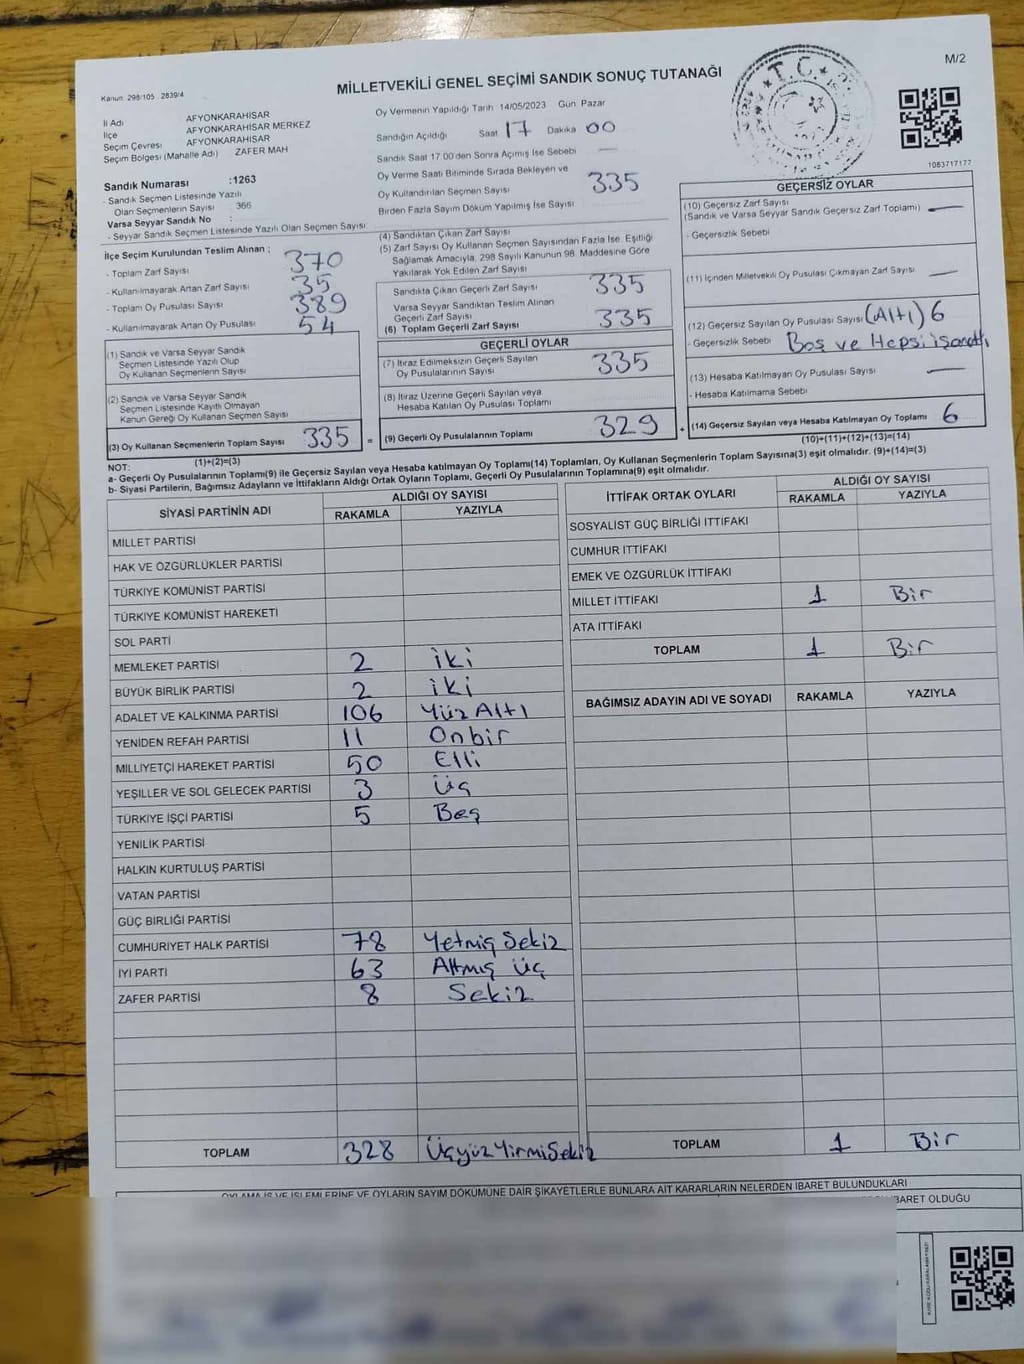 M/2
Kanun 298/105 2839/4
MİLLETVEKİLİ GENEL SEÇİMİ SANDIK SONUÇ TUTANAĞI
T.C.
1083717177
İl Adı AFYONKARAHİSAR
İlçe AFYONKARAHİSAR MERKEZ
Seçim Çevresi AFYONKARAHİSAR
Seçim Bölgesi (Mahalle Adı) ZAFER MAH
Sandık Numarası :1263
- Sandık Seçmen Listesinde Yazılı
Olan Seçmenlerin Sayısı 366
Varsa Seyyar Sandık No :
- Seyyar Sandık Seçmen Listesinde Yazılı Olan Seçmen Sayısı
Oy Vermenin Yapıldığı Tarih 14/05/2023 Gün Pazar
Sandığın Açıldığı Saat 17 Dakika 00
Sandık Saat 17.00'den Sonra Açımış İse Sebebi —
Oy Verme Saati Bitiminde Sırada Bekleyen ve
Oy Kullandırılan Seçmen Sayısı 335
Birden Fazla Sayım Döküm Yapılmış İse Sayısı
İlçe Seçim Kurulundan Teslim Alınan :
- Toplam Zarf Sayısı 370
- Kullanılmayarak Artan Zarf Sayısı 35
- Toplam Oy Pusulası Sayısı 389
- Kullanılmayarak Artan Oy Pusulası 54
(1) Sandık ve Varsa Seyyar Sandık
Seçmen Listesinde Yazılı Olup
Oy Kullanan Seçmenlerin Sayısı
(2) Sandık ve Varsa Seyyar Sandık
Seçmen Listesinde Kayıtlı Olmayan
Kanun Gereği Oy Kullanan Seçmen Sayısı
(3) Oy Kullanan Seçmenlerin Toplam Sayısı 335 =
(1)+(2)=(3)
(4) Sandıktan Çıkan Zarf Sayısı
(5) Zarf Sayısı Oy Kullanan Seçmen Sayısından Fazla İse, Eşitliği
Sağlamak Amacıyla, 298 Sayılı Kanunun 98. Maddesine Göre
Yakılarak Yok Edilen Zarf Sayısı
Sandıkta Çıkan Geçerli Zarf Sayısı 335
Varsa Seyyar Sandıktan Teslim Alınan
Geçerli Zarf Sayısı
(6) Toplam Geçerli Zarf Sayısı 335
GEÇERLİ OYLAR
(7) İtiraz Edilmeksizin Geçerli Sayılan
Oy Pusulalarının Sayısı 335
(8) İtiraz Üzerine Geçerli Sayılan veya
Hesaba Katılan Oy Pusulası Toplamı
(9) Geçerli Oy Pusulalarının Toplamı 329 +
GEÇERSİZ OYLAR
(10) Geçersiz Zarf Sayısı
(Sandık ve Varsa Seyyar Sandık Geçersiz Zarf Toplamı) —
- Geçersizlik Sebebi
(11) İçinden Milletvekili Oy Pusulası Çıkmayan Zarf Sayısı —
(12) Geçersiz Sayılan Oy Pusulası Sayısı (Altı) 6
- Geçersizlik Sebebi Boş ve Hepsi işaretli
(13) Hesaba Katılmayan Oy Pusulası Sayısı —
- Hesaba Katılmama Sebebi
(14) Geçersiz Sayılan veya Hesaba Katılmayan Oy Toplamı 6
(10)+(11)+(12)+(13)=(14)
NOT:
a- Geçerli Oy Pusulalarının Toplamı(9) ile Geçersiz Sayılan veya Hesaba katılmayan Oy Toplamı(14) Toplamları, Oy Kullanan Seçmenlerin Toplam Sayısına(3) eşit olmalıdır. (9)+(14)=(3)
b- Siyasi Partilerin, Bağımsız Adayların ve İttifakların Aldığı Ortak Oyların Toplamı, Geçerli Oy Pusulalarının Toplamına(9) eşit olmalıdır.
SİYASİ PARTİNİN ADI ALDIĞI OY SAYISI
RAKAMLA YAZIYLA
MİLLET PARTİSİ
HAK VE ÖZGÜRLÜKLER PARTİSİ
TÜRKİYE KOMÜNİST PARTİSİ
TÜRKİYE KOMÜNİST HAREKETİ
SOL PARTİ
MEMLEKET PARTİSİ 2 iki
BÜYÜK BİRLİK PARTİSİ 2 iki
ADALET VE KALKINMA PARTİSİ 106 Yüz Altı
YENİDEN REFAH PARTİSİ 11 Onbir
MİLLİYETÇİ HAREKET PARTİSİ 50 Elli
YEŞİLLER VE SOL GELECEK PARTİSİ 3 Üç
TÜRKİYE İŞÇİ PARTİSİ 5 Beş
YENİLİK PARTİSİ
HALKIN KURTULUŞ PARTİSİ
VATAN PARTİSİ
GÜÇ BİRLİĞİ PARTİSİ
CUMHURİYET HALK PARTİSİ 78 Yetmiş Sekiz
İYİ PARTİ 63 Altmış üç
ZAFER PARTİSİ 8 Sekiz
TOPLAM 328 ÜçyüzYirmiSekiz
İTTİFAK ORTAK OYLARI ALDIĞI OY SAYISI
RAKAMLA YAZIYLA
SOSYALİST GÜÇ BİRLİĞİ İTTİFAKI
CUMHUR İTTİFAKI
EMEK VE ÖZGÜRLÜK İTTİFAKI
MİLLET İTTİFAKI 1 Bir
ATA İTTİFAKI
TOPLAM 1 Bir
BAĞIMSIZ ADAYIN ADI VE SOYADI RAKAMLA YAZIYLA
TOPLAM 1 Bir
OYLAMA İŞ VE İŞLEMLERİNE VE OYLARIN SAYIM DÖKÜMÜNE DAİR ŞİKAYETLERLE BUNLARA AİT KARARLARIN NELERDEN İBARET BULUNDUKLARI
İBARET OLDUĞU